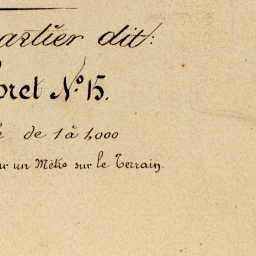 artier dit:
oret N.º 15.
de 1 à 4000
ur un Mètre sur le Terrain.